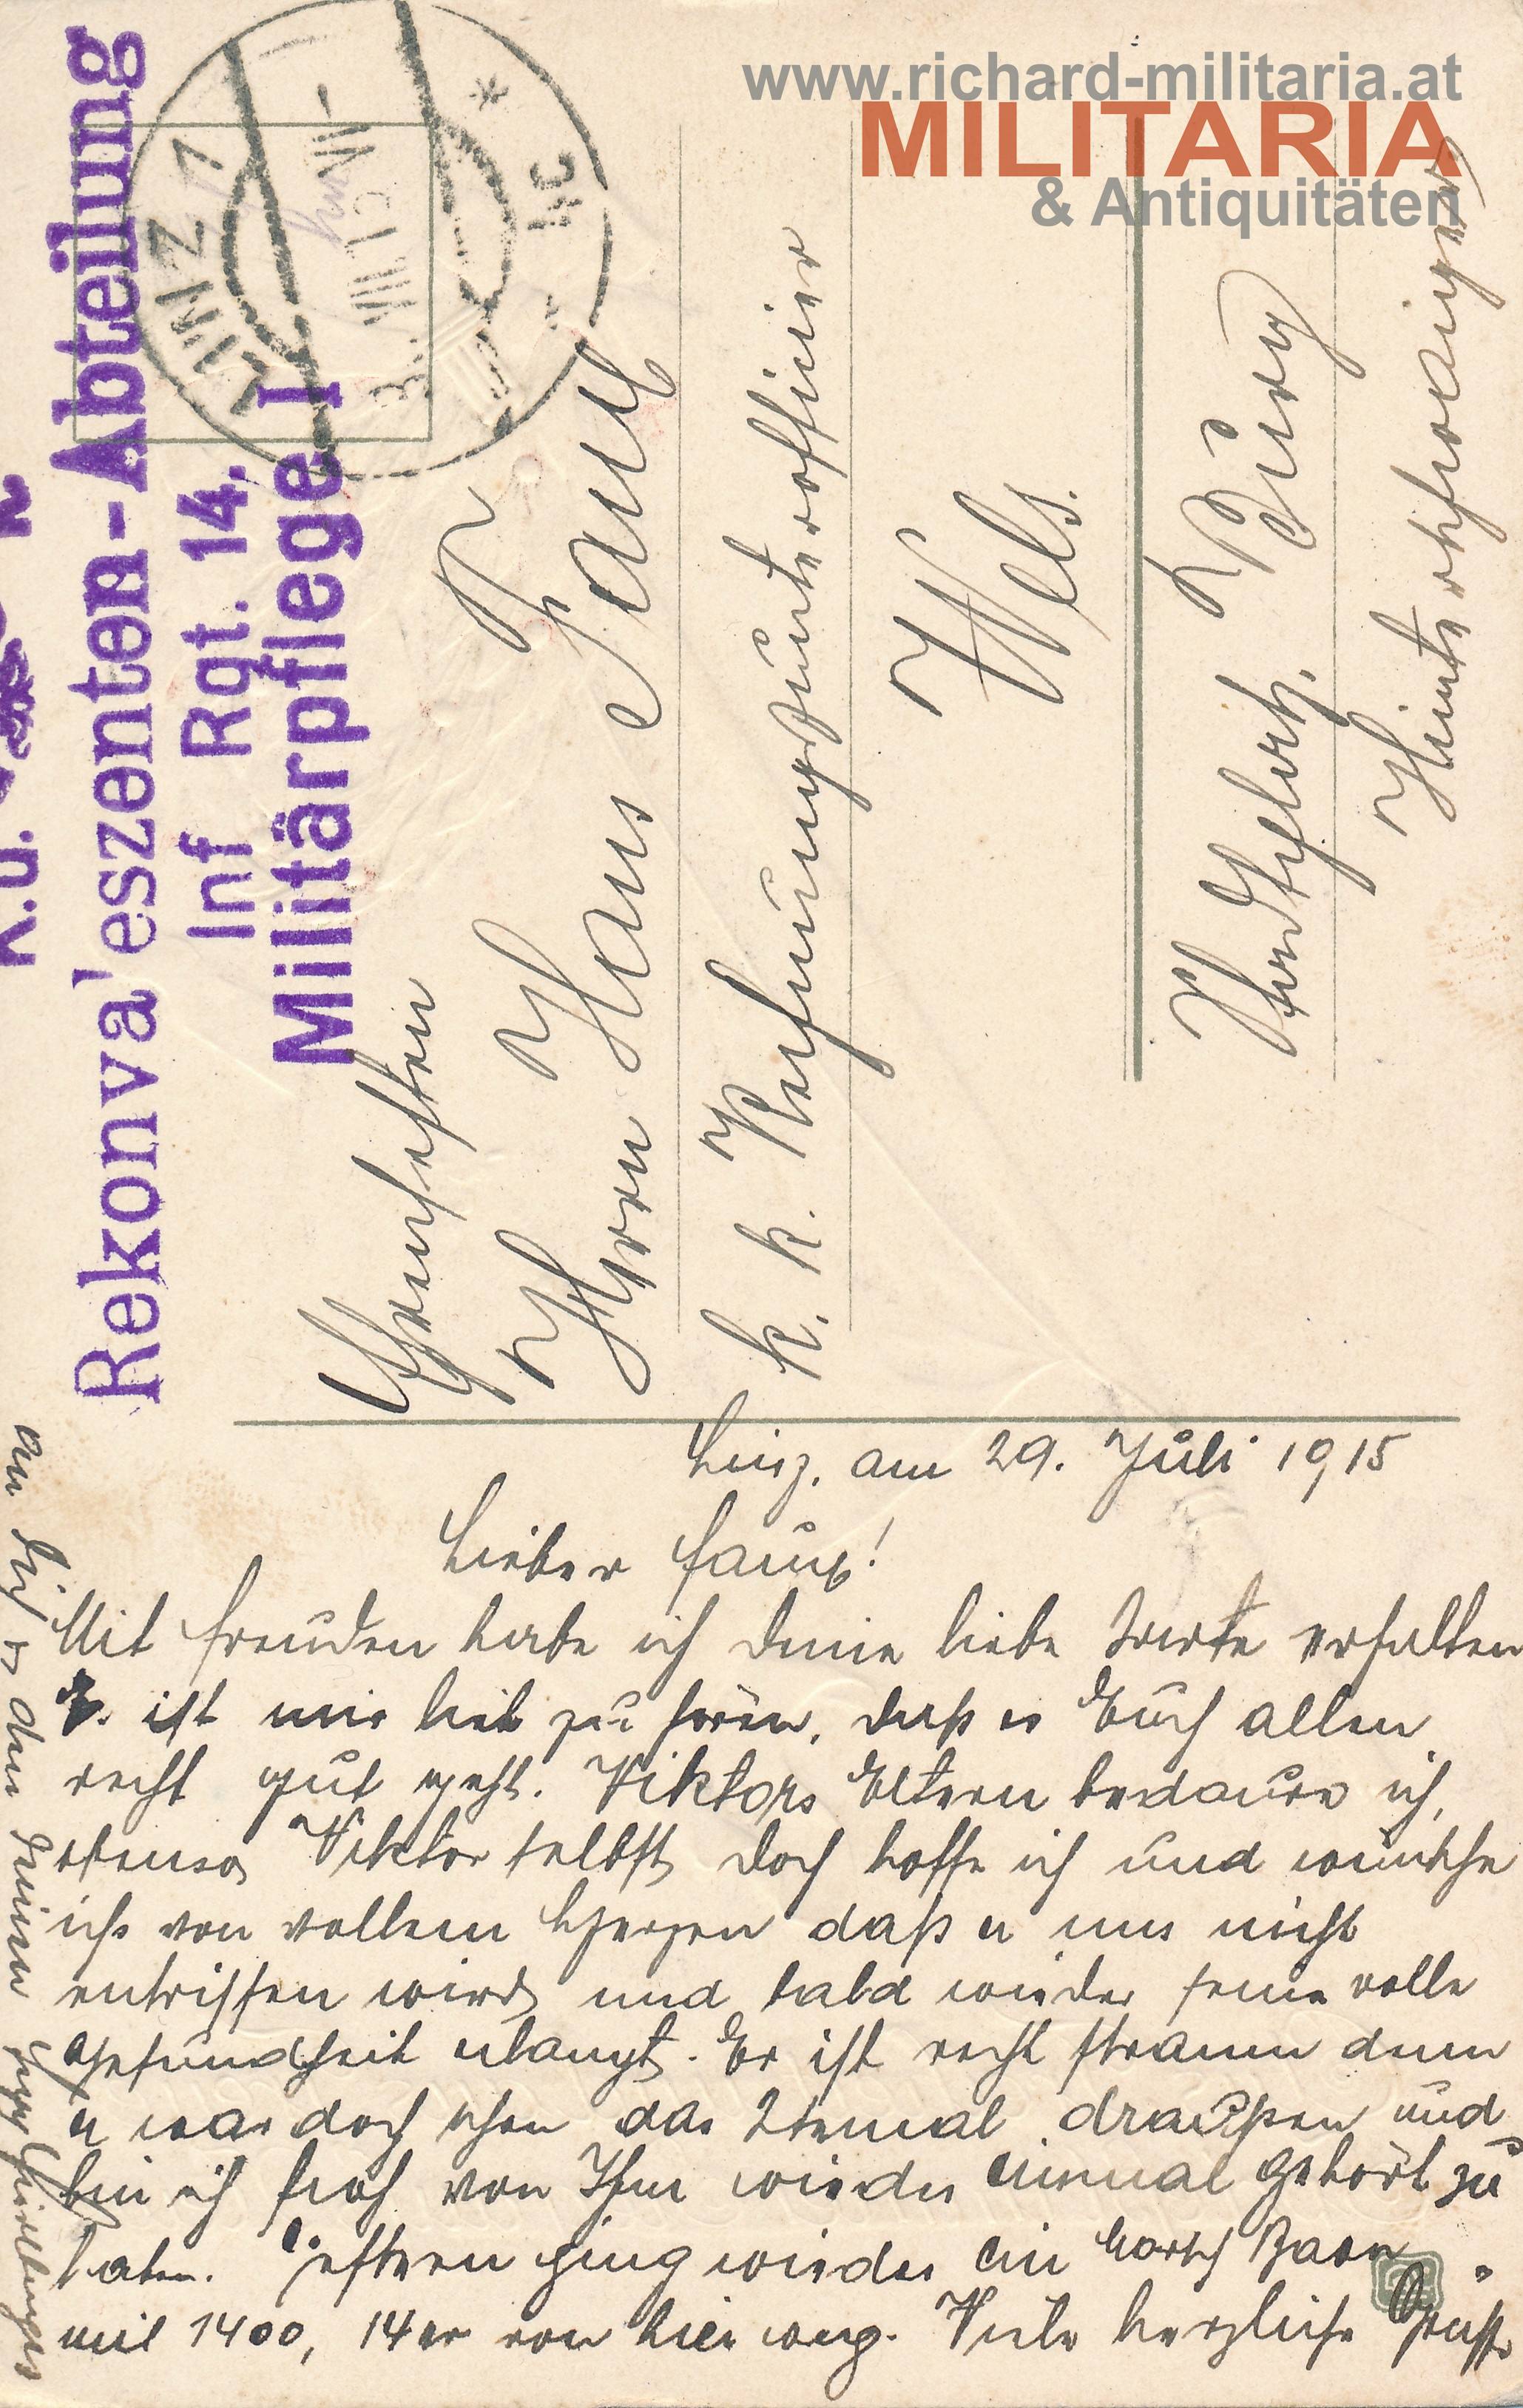 www.richard-militaria.at
MILITARIA
& Antiquitäten
K.u.
Rekonva'eszenten-Abteilung
Inf Rgt. 14.
Militärpflege I
LINZ 1
3. VIII. 15 VI-
* 3c
Herrn Hans
k. k. Rechnungsunterofficier
Wels.
Linz, am 29. Juli 1915
Lieber
Mit Freuden habe ich deine liebe Karte erhalten
ist mir lieb zu hören, daß es Euch allen
recht gut geht. Viktors Eltern bedaure ich,
ebenso Viktor selbst, doch hoffe ich und wünsche
ich von vollem Herzen daß er uns nicht
entrissen wird, und bald wieder seine volle
Gesundheit erlangt. Er ist recht stramm denn
er war doch schon das 2temal draußen und
bin ich froh von Ihm wieder einmal gehört zu
haben. ging wieder ein Marsch Baon
mit 1400, 14er von hier weg. Viele herzliche Grüße
an Dich